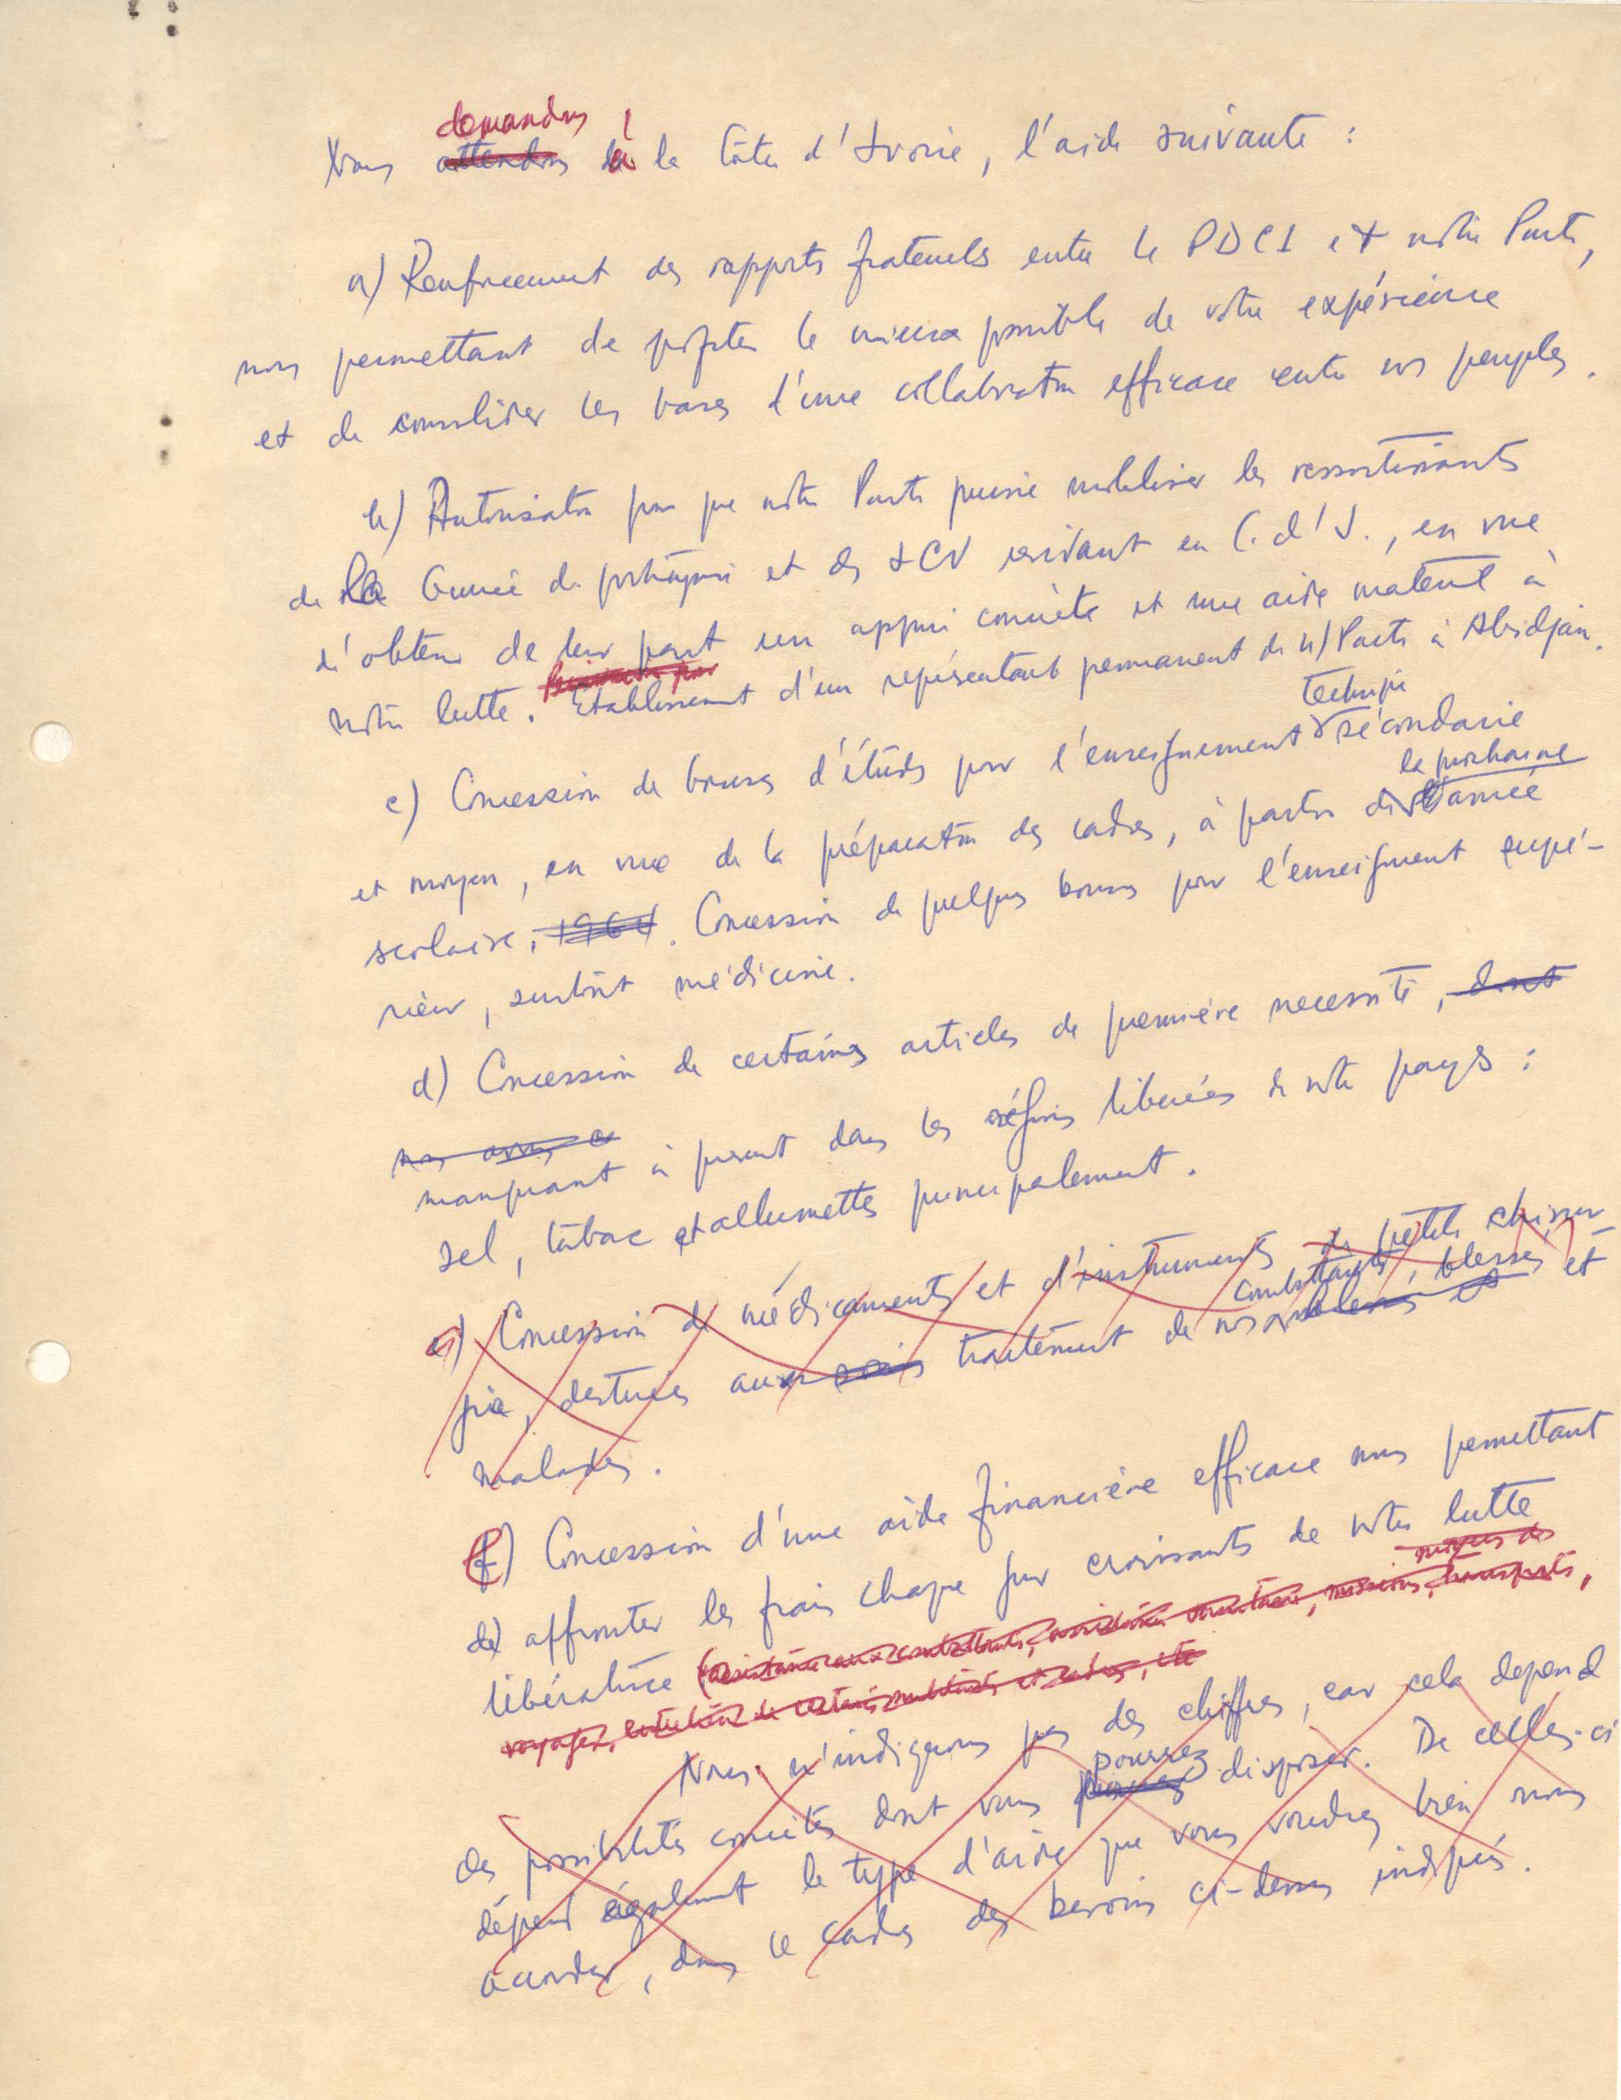 demandons
Nous attendons à la Côte d'Ivoire, l'aide suivante :
a) Renforcement des rapports fraternels entre le PDCI et notre Parti,
nous permettant de profiter le mieux possible de votre expérience
et de consolider les bases d'une collaboration efficace entre nos peuples.
b) Autorisation pour que notre Parti puisse mobiliser les ressortissants
de la Guinée dite portugaise et des ICV résidant en C. d'I., en vue
d'obtenir de leur part un appui concrète et une aide matériel à
notre lutte. Etablissement d'un représentant permanent de n/Parti à Abidjan.
technique
c) Concession de bourses d'études pour l'enseignement sécondaire
la prochaine
et moyen, en vue de la préparation des cadres, à partir de l'année
scolaire, 1964. Concession de quelques bourses pour l'enseignement supé-
rieur, surtout médicine.
d) Concession de certaines articles de première necessité, dont
nous avons
manquant à present dans les régions libérées de notre pays :
sel, tabac et allumettes principalement.
e) Concession de médicaments et d'instruments de petite chirur-
combattants, blessés et
gie, destinés aux soins traitement de nos blessés et
malades.
f) Concession d'une aide financière efficace nous permettant
d'affronter les frais chaque jour croissants de notre lutte
moyens de
libératrice (assistance aux combattants, missions, transports,
voyages, entretien de certains militants et cadres, etc
Nous n'indiquons pas des chiffres, car cela dépend
pourrez
des possibilités concrètes dont vous pouvez disposer. De celles-ci
dépend également le type d'aide que vous voudrez bien nous
accorder, dans le cadre des besoins ci-dessus indiqués.